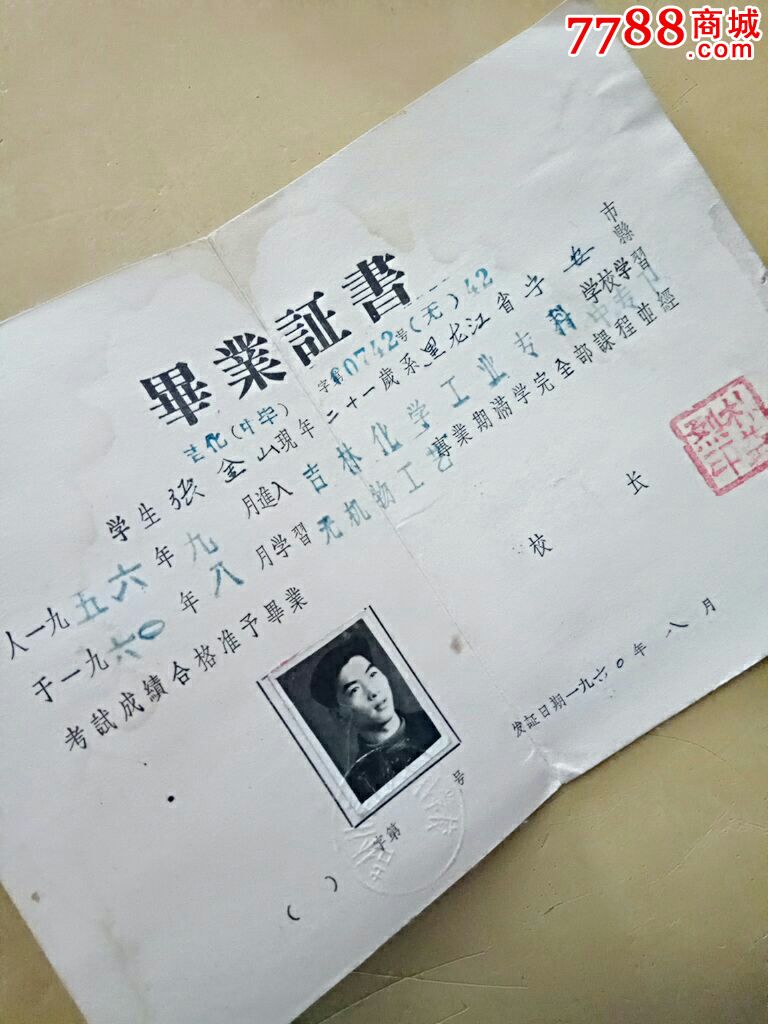 7788商城
.com
畢業証書
吉化(中毕)字第60742号(无)42
学生張金山現年二十一歲系黑龙江省宁安市縣
人一九五六年九月進入吉林化学工业专科学校学習
中专
于一九六〇年八月学習无机物工艺專業期滿学完全部課程並經
考試成績合格准予畢業
校長
发証日期一九六〇年八月
( )字第 号